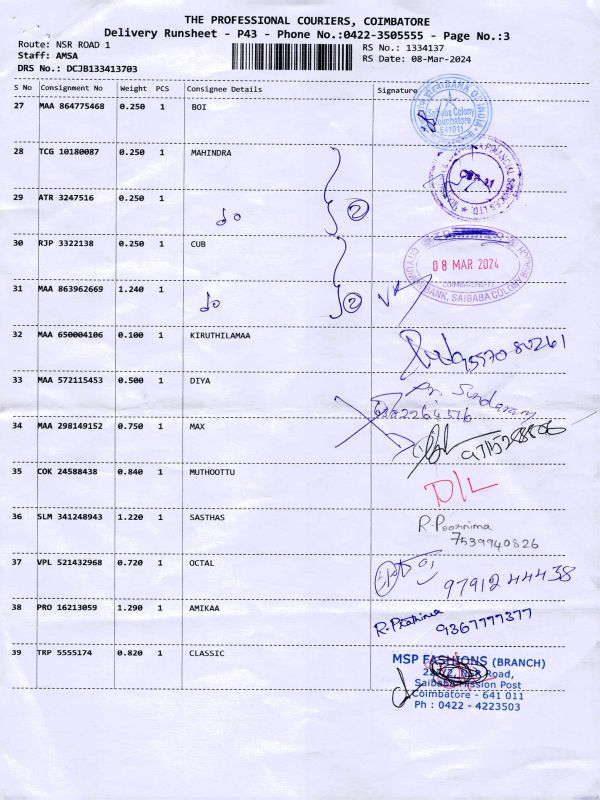 THE PROFESSIONAL COURIERS, COIMBATORE
Delivery Runsheet - P43 - Phone No.:0422-3505555 - Page No.:3
Route: NSR ROAD 1
Staff: AMSA
DRS No.: DCJB133413703
RS No.: 1334137
RS Date: 08-Mar-2024
S No Consignment No Weight PCS Consignee Details Signature
27 MAA 864775468 0.250 1 BOI
BANK OF INDIA
Saibaba Colony
Coimbatore
641011
28 TCG 10180087 0.250 1 MAHINDRA
FINANCIAL SERVICES LTD.
29 ATR 3247516 0.250 1 do 2
30 RJP 3322138 0.250 1 CUB
08 MAR 2024
BANK, SAIBABA COLONY BRANCH
31 MAA 863962669 1.240 1 do 2
32 MAA 650004106 0.100 1 KIRUTHILAMAA
33 MAA 572115453 0.500 1 DIYA Sundaram
34 MAA 298149152 0.750 1 MAX
35 COK 24588438 0.840 1 MUTHOOTTU D/L
36 SLM 341248943 1.220 1 SASTHAS R. Poornima
7539940826
37 VPL 521432968 0.720 1 OCTAL 9791244438
38 PRO 16213059 1.290 1 AMIKAA 9367777377
39 TRP 5555174 0.820 1 CLASSIC
MSP FASHIONS (BRANCH)
NSR Road,
Saibaba Mission Post
Coimbatore - 641 011
Ph : 0422 - 4223503